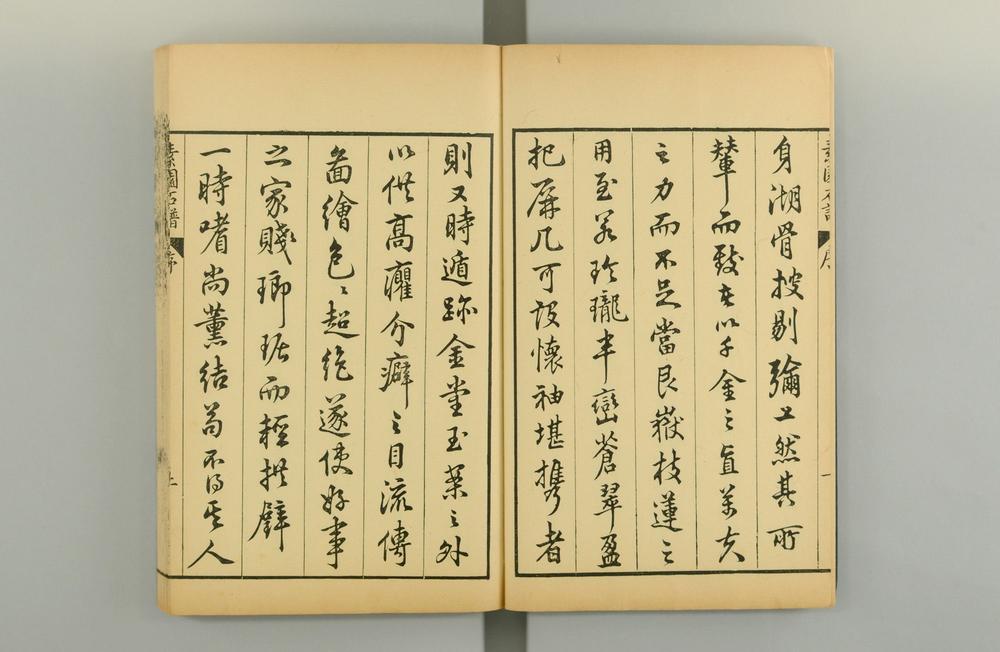 素園石譜 序 一
身湖骨披剔彌工然其所
輦而致以千金之直萬夫
之力而不足當艮嶽枝蓮之
用至若玲瓏半巒蒼翠盈
把屏几可設懷袖堪攜者
則又時遁跡金堂玉之外
以供高癯介癖之目流傳
圖繪色〻超絶遂使好事
之家賤瑯琚而輕拱璧
一時嗜尚薰結苟不得其人
素園石譜 序 上